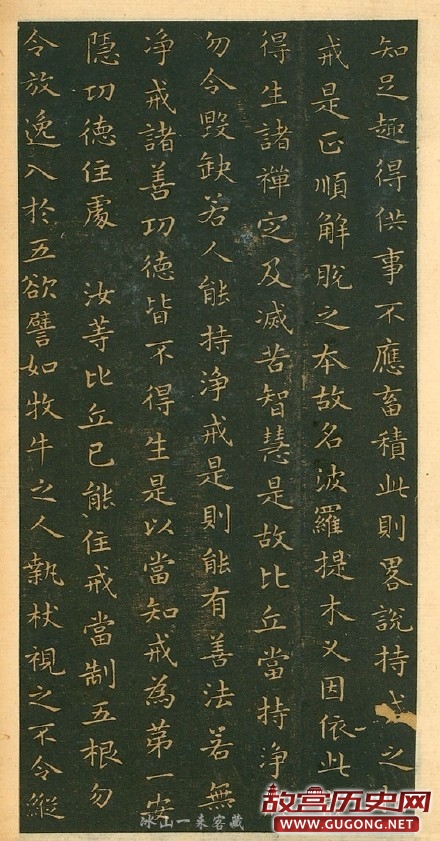 知足趣得供事不應畜積此則畧說持戒之
戒是正順解脫之本故名波羅提木叉因依此
得生諸禪定及滅苦智慧是故比丘當持淨
勿令毀缺若人能持淨戒是則能有善法若無
净戒諸善功德皆不得生是以當知戒為第一安
隱功德住處　汝等比丘已能住戒當制五根勿
令放逸入於五欲譬如牧牛之人執杖視之不令縱
冰山一来客藏
故宫历史网
WWW.GUGONG.NET